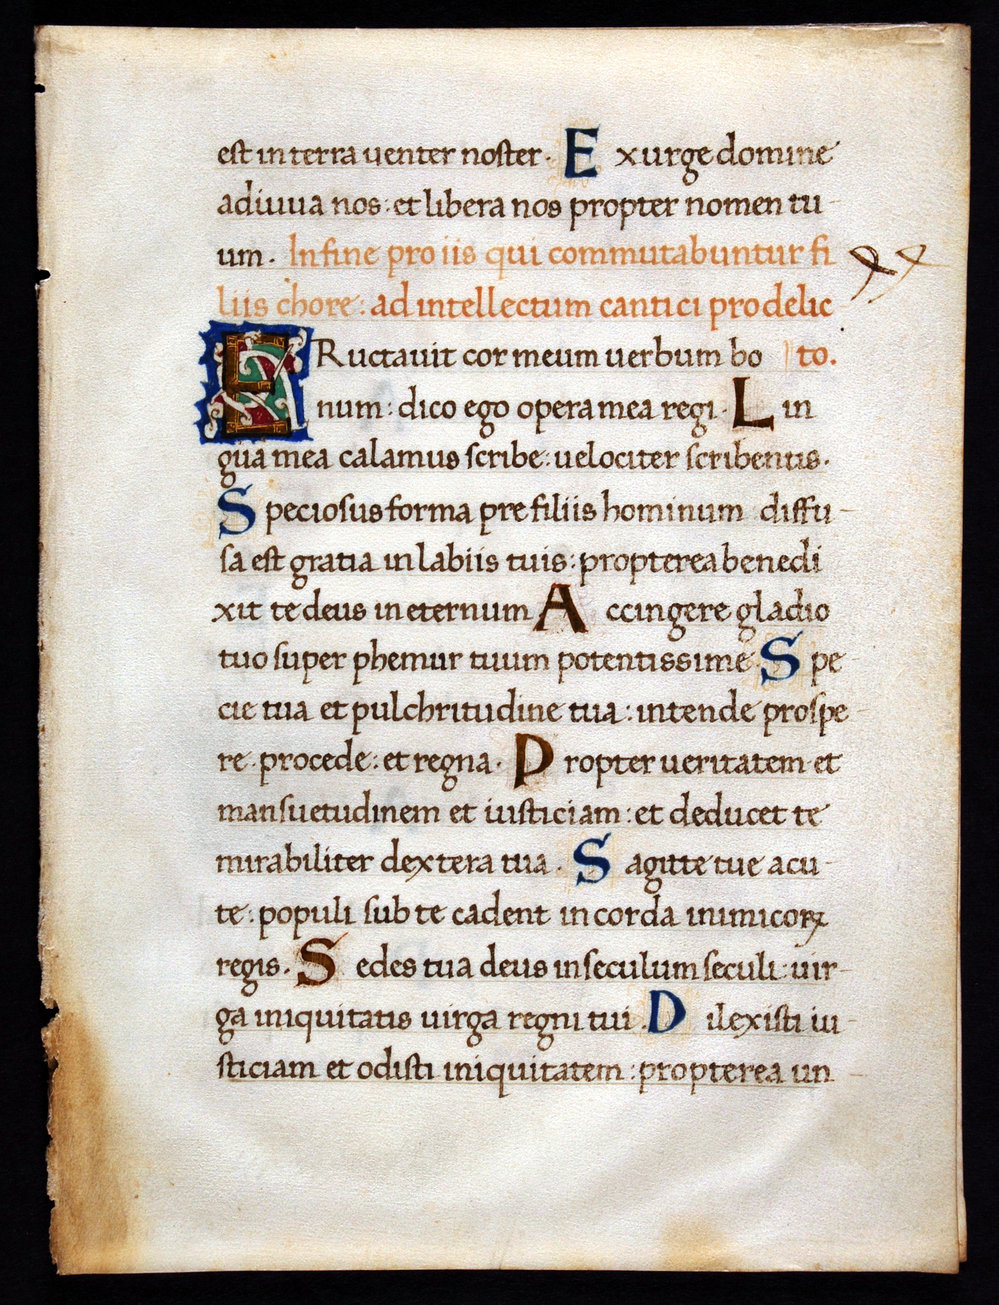 est in terra uenter noster · Exurge domine
adiuua nos : et libera nos propter nomen tu
um · In fine pro iis qui commutabuntur fi
liis chore : ad intellectum cantici pro delic
ERuctauit cor meum uerbum bo to.
num : dico ego opera mea regi · Lin
gua mea calamus scribe : uelociter scribentis ·
Speciosus forma pre filiis hominum diffu
sa est gratia in labiis tuis : propterea benedi
xit te deus in eternum · Accingere gladio
tuo super phemur tuum potentissime · Spe
cie tua et pulchritudine tua : intende prospe
re · procede : et regna · Propter ueritatem et
mansuetudinem et iusticiam : et deducet te
mirabiliter dextera tua · Sagitte tue acu
te : populi sub te cadent in corda inimicoꝝ
regis · Sedes tua deus in seculum seculi : uir
ga iniquitatis uirga regni tui · Dilexisti iu
sticiam et odisti iniquitatem : propterea un